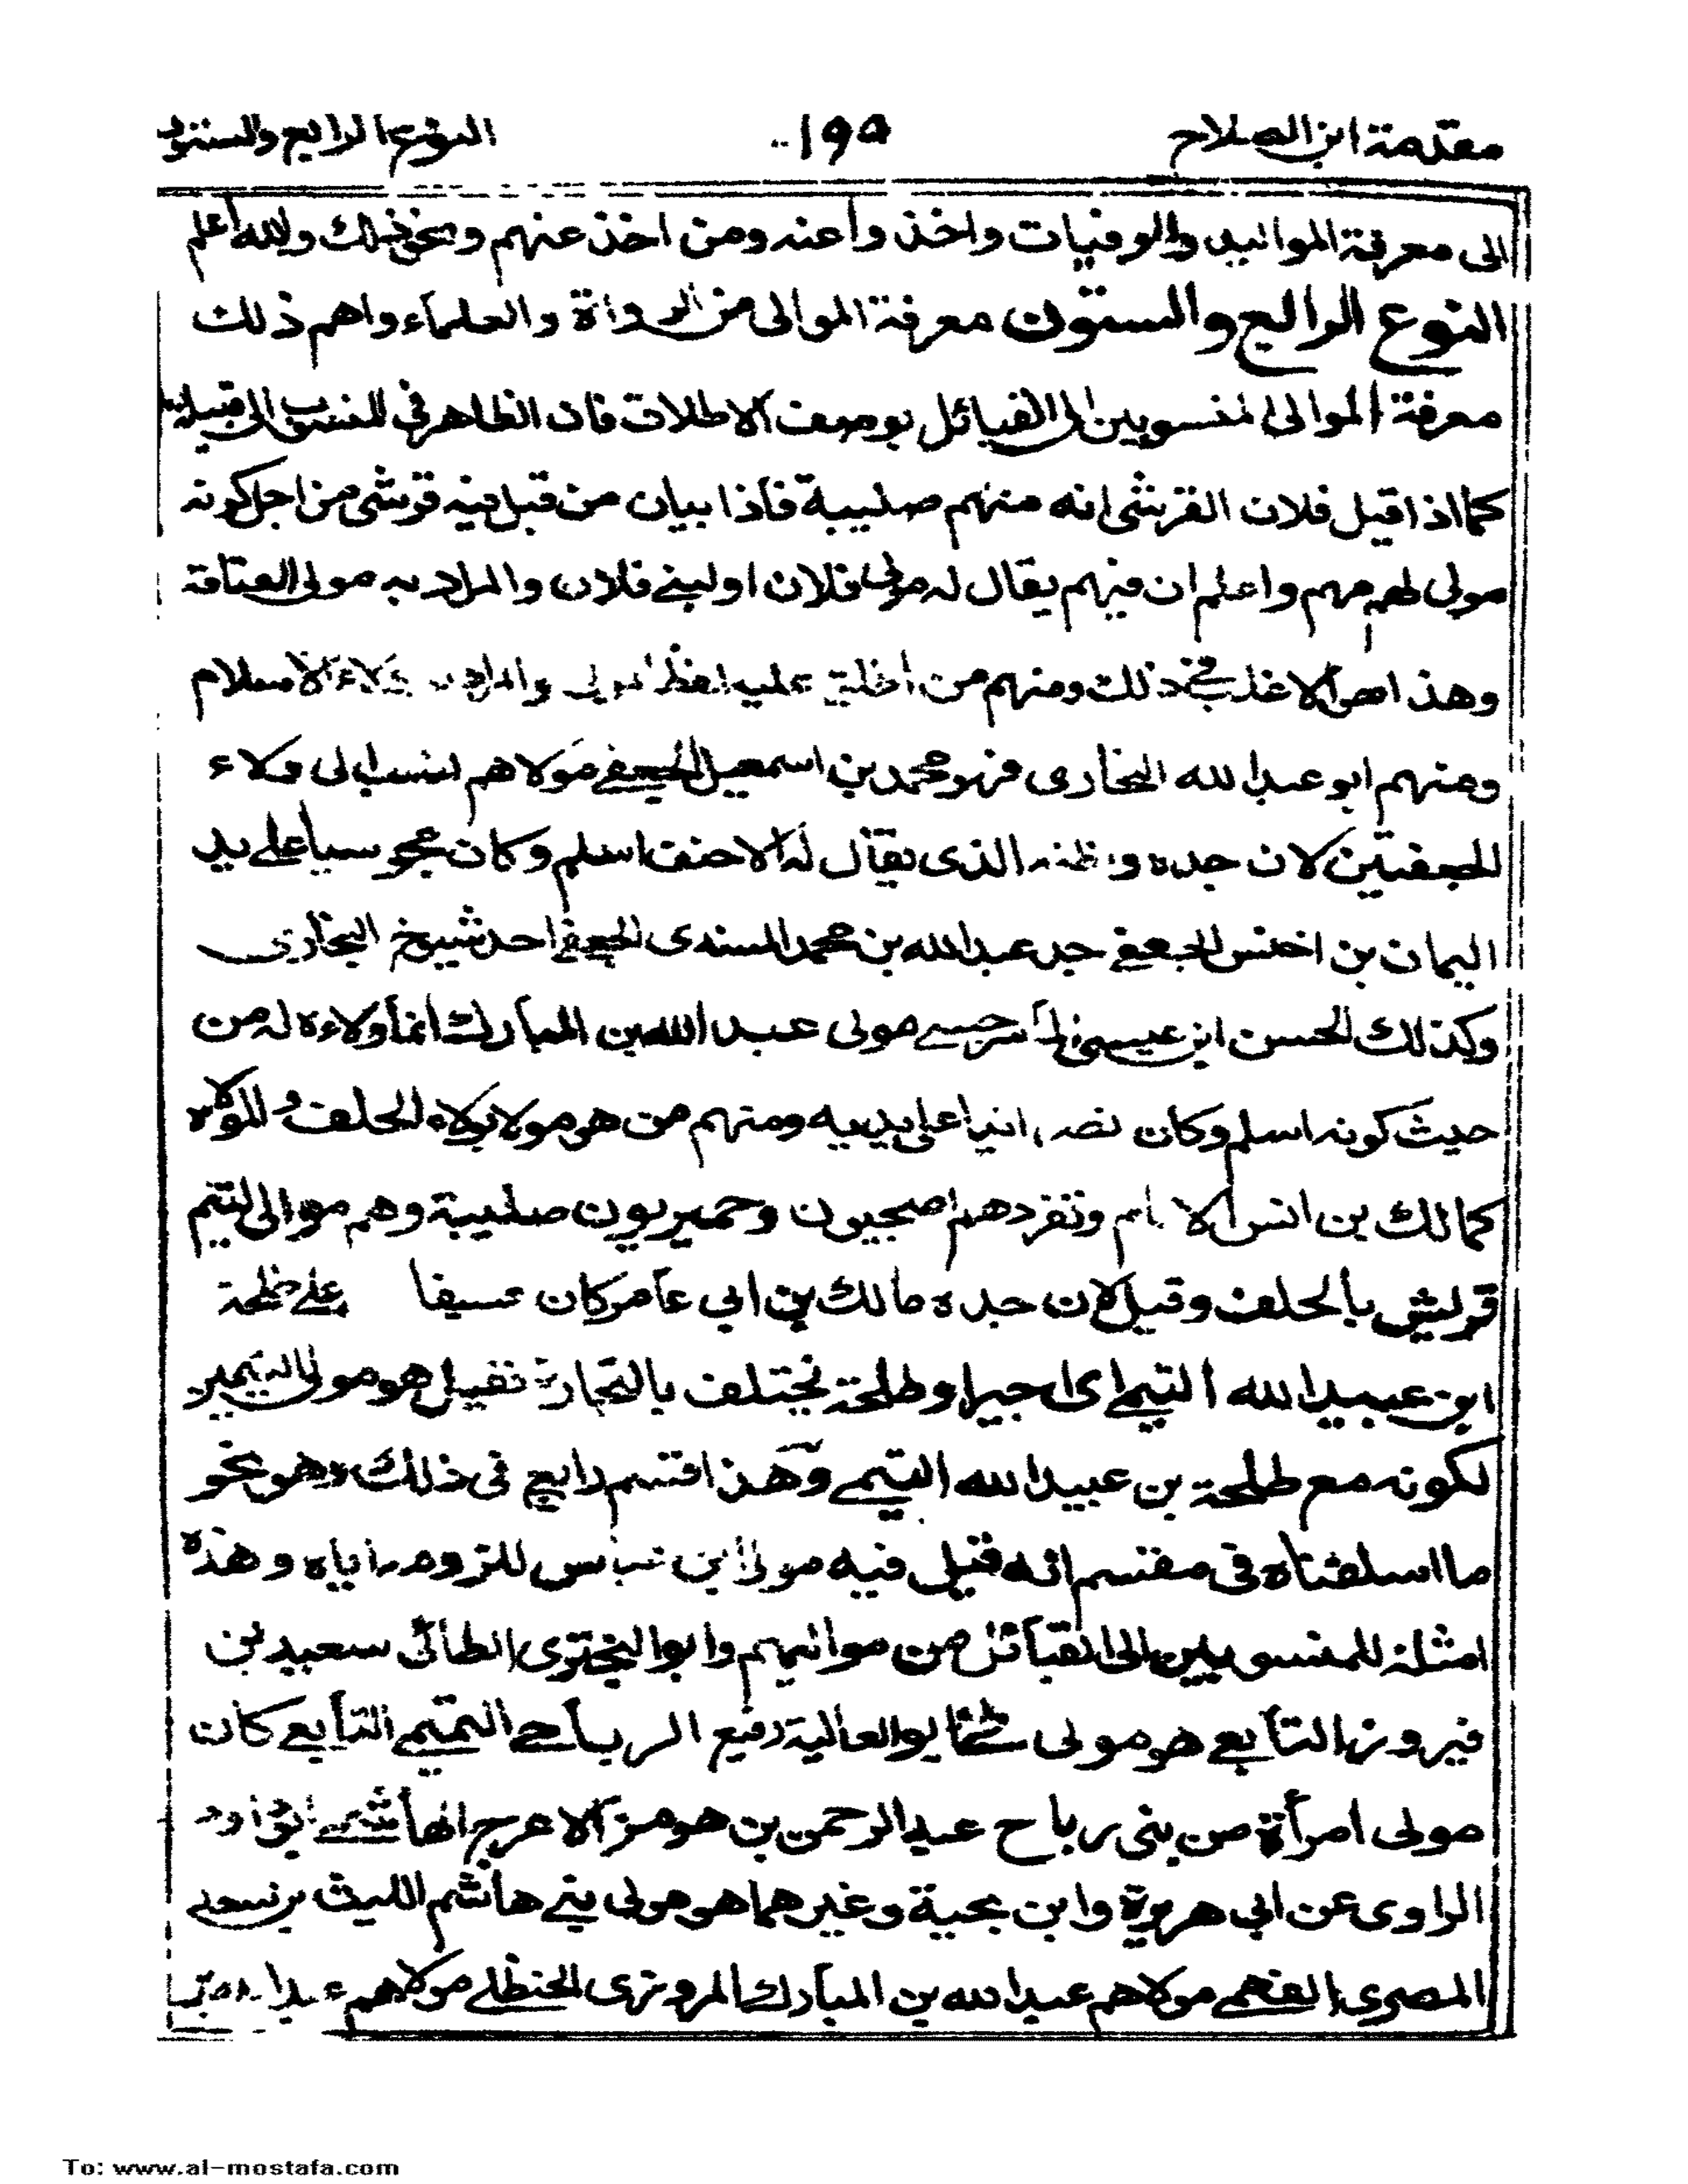 مقدمة ابن الصلاح
١٩٩
النوع الرابع والستون
الى معرفة المواليد والوفيات واخذوا عنه ومن اخذ عنهم ونحو ذلك والله اعلم
النوع الرابع والستون معرفة الموالى من الرواة والعلماء واهم ذلك
معرفة الموالى المنسوبين الى القبائل بوصف الاطلاق فان الظاهر فى المنسوب الى قبيلة
كما اذا قيل فلان القرشى انه منهم صليبة فاذا بيان من قيل فيه قرشى من اجل كونه
مولى لهم مهم واعلم ان فيهم يقال له مولى فلان او لبنى فلان والمراد به مولى العتاقة
وهذا هو الاغلب فى ذلك ومنهم من اطلق عليه لفظ المولى والمراد ولاء الاسلام
ومنهم ابو عبد الله البخارى فهو محمد بن اسمعيل الجعفى مولاهم لنسب الى ولاء
الجعفيين لان جده واظنه الذى يقال له الاحنف اسلم وكان مجوسيا على يد
اليمان بن اخنس الجعفى جد عبد الله بن محمد المسندى الجعفى احد شيوخ البخارى
وكذلك الحسن ابن عيسى الماسرجسى مولى عبد الله بن المبارك انما ولاءه له من
حيث كونه اسلم وكان نصرانيا على يديه ومنهم من هو مولا بولاء الحلف والموالاه
كمالك بن انس الامام ونفره هم اصبحيون وحميريون صليبة وهم موالى لتيم
قريش بالحلف وقيل لان جده مالك بن ابى عامر كان عسيفا على طلحة
ابن عبيد الله التيمى اى اجيرا وطلحة يختلف بالتجارة فقيل هو مولى التيميين
لكونه مع طلحة بن عبيد الله التيمى وهذا قسم رابع فى ذلك وهو نحو
ما اسلفناه فى مقسم انه قيل فيه مولى ابن عباس للزومه اياه وهذه
امثلة للمنسوبين الى القبائل من مواليهم وابو البخترى الطائى سعيد بن
فيروز التابعى هو مولى طى ابو العالية رفيع الرياحى التميمى التابعى كان
مولى امرأة من بنى رياح عبد الرحمن بن هرمز الاعرج الهاشمى ابو داود
الراوى عن ابى هريرة وابن بحينة وغيرهما هو مولى بنى هاشم الليث بن سعد
المصرى الفهمى مولاهم عبد الله بن المبارك المروزى الحنظلى مولاهم عبد الله بن
To: www.al-mostafa.com